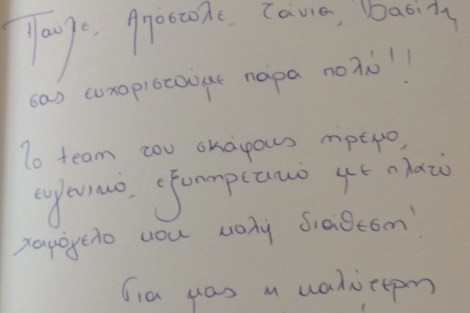 Παύλε, Απόστολε, Τάνια, Βασίλη
σας ευχαριστούμε πάρα πολύ!!
Το team του σκάφους ήρεμο,
ευγενικό, εξυπηρετικό με πλατύ
χαμόγελο και καλή διάθεση!
Για μας η καλύτερη